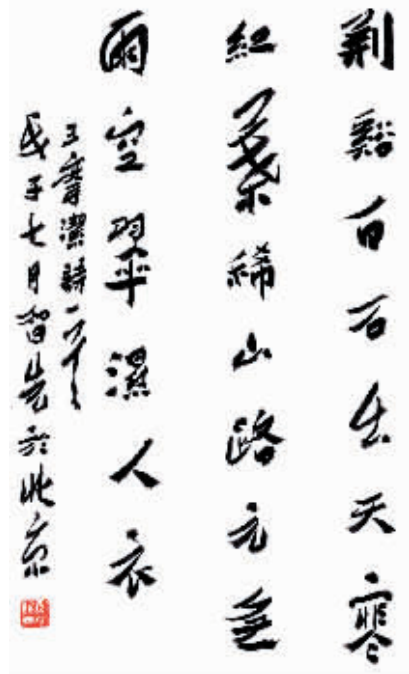 荆谿白石出天寒
紅葉稀山路元無
雨空翠濕人衣
王摩潔詩一首
戊子七月智先於北京